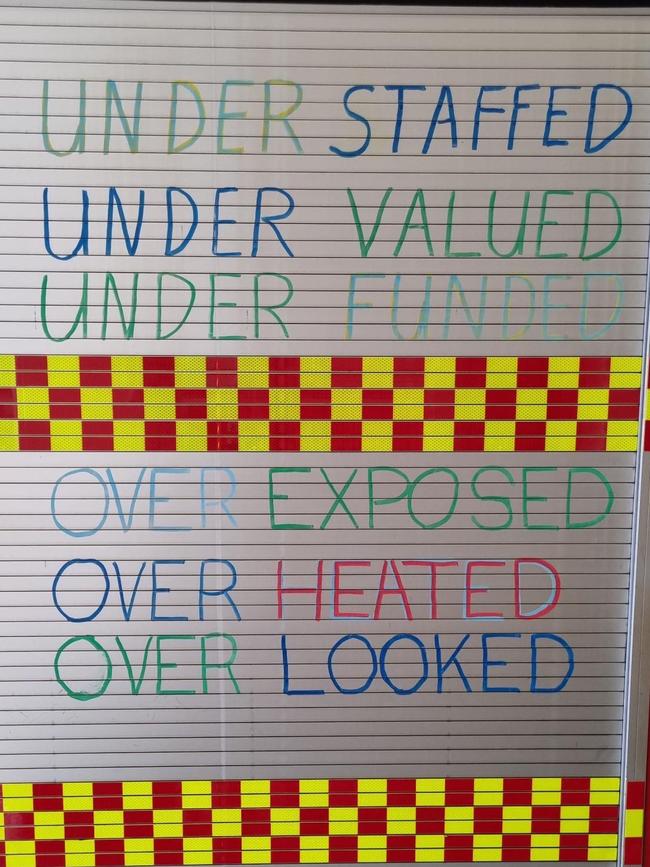 UNDER STAFFED
UNDER VALUED
UNDER FUNDED
OVER EXPOSED
OVER HEATED
OVER LOOKED